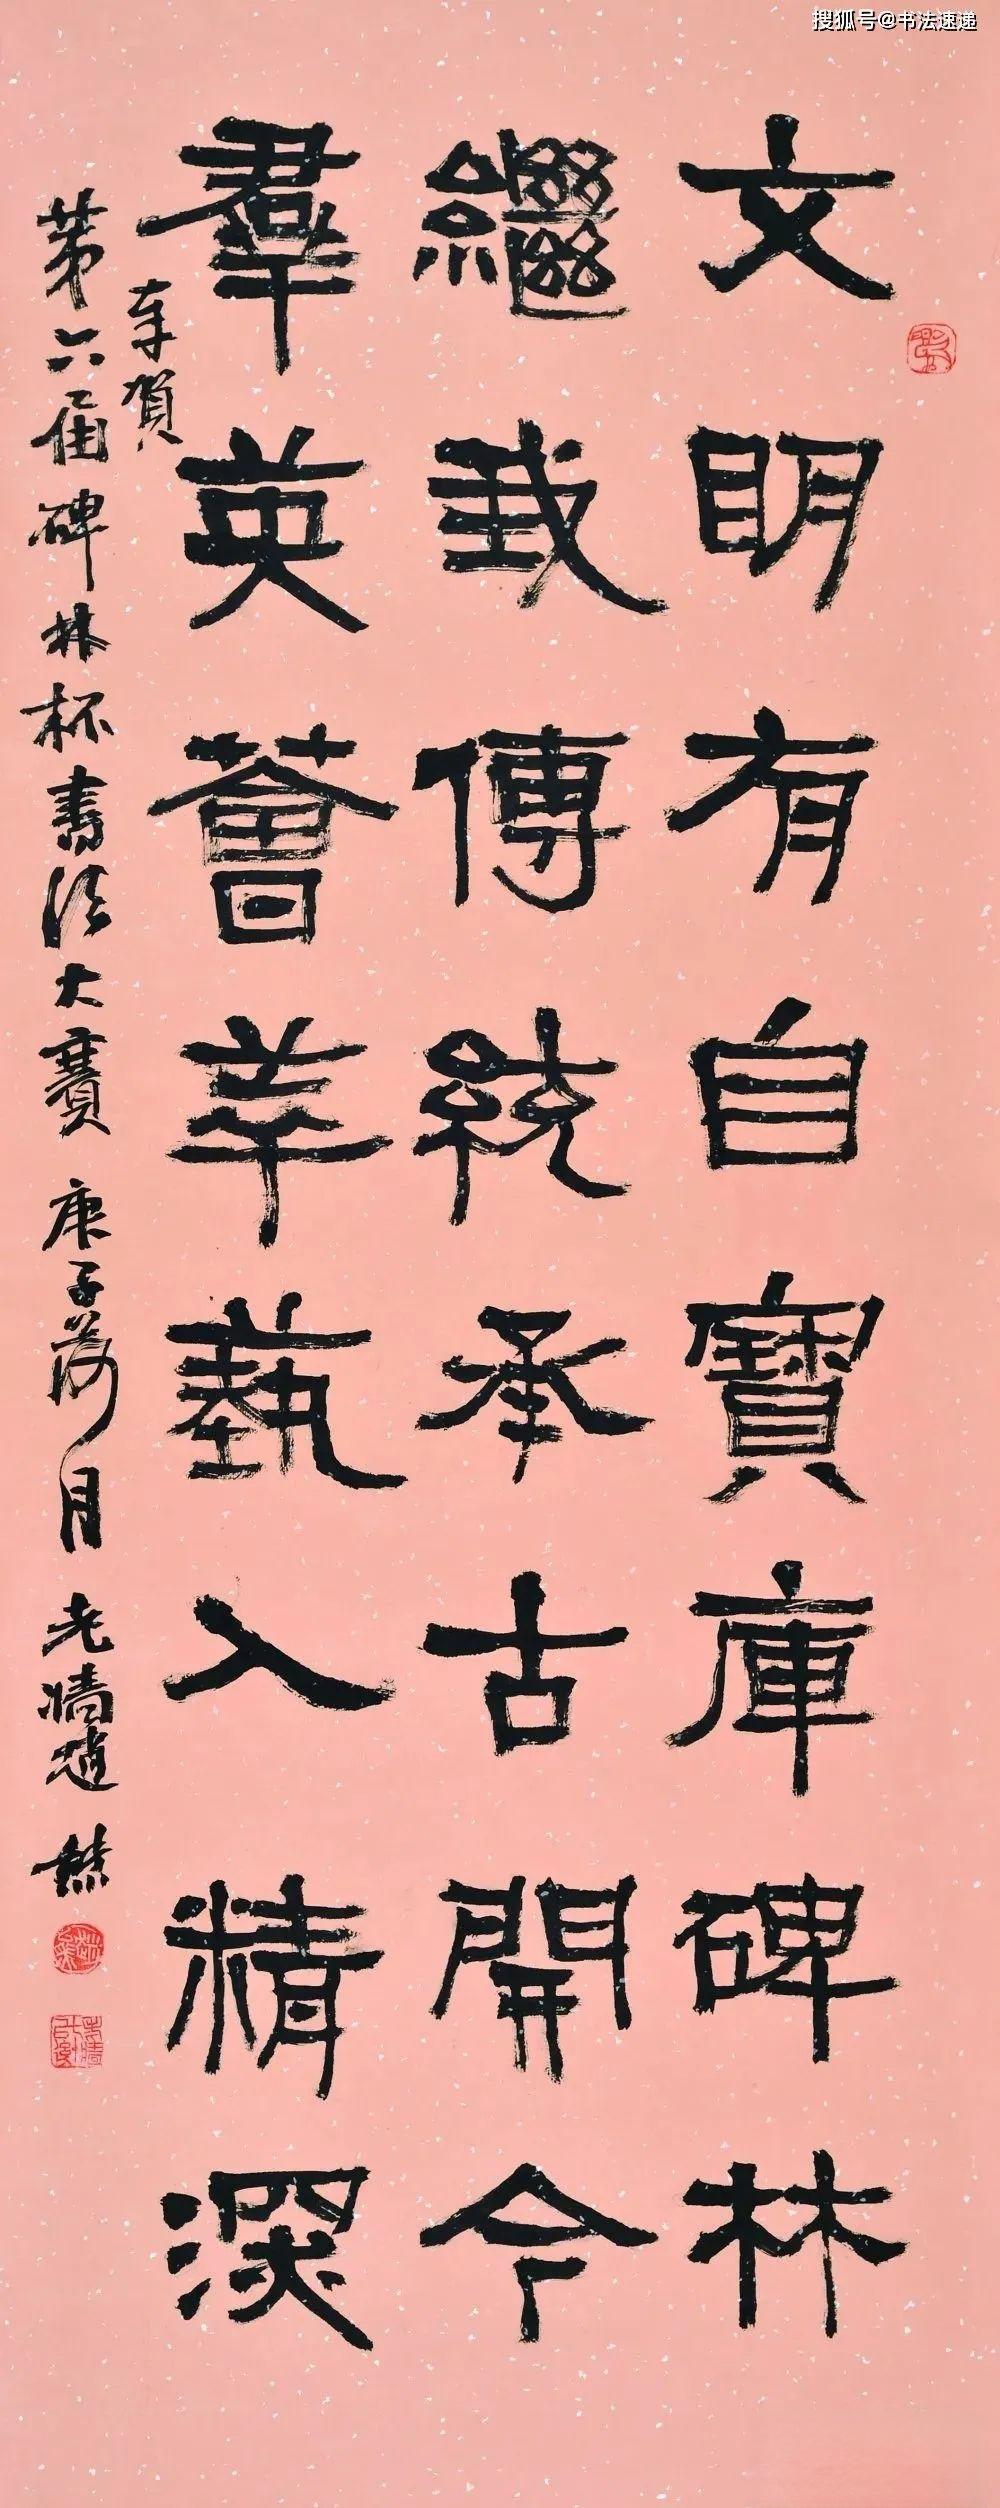 搜狐号@书法速递
文明有自寶庫碑林
繼我傳統承古開今
羣英薈萃藝入精深
奉賀
第六届碑林杯書法大賽 庚子荷月 老墻趙熊